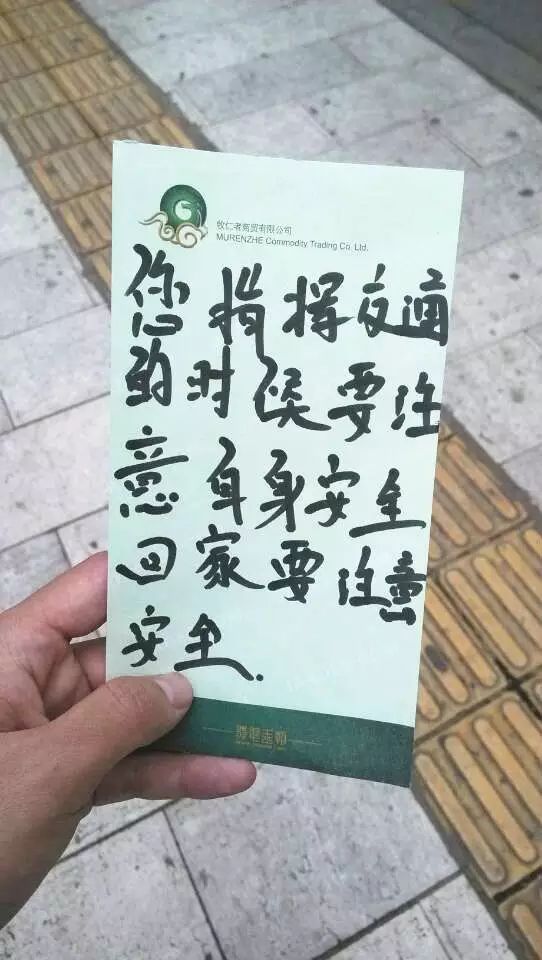 牧仁者商贸有限公司
MURENZHE Commodity Trading Co. Ltd.
您指挥交通
的时候要注
意自身安全
回家要注意
安全.